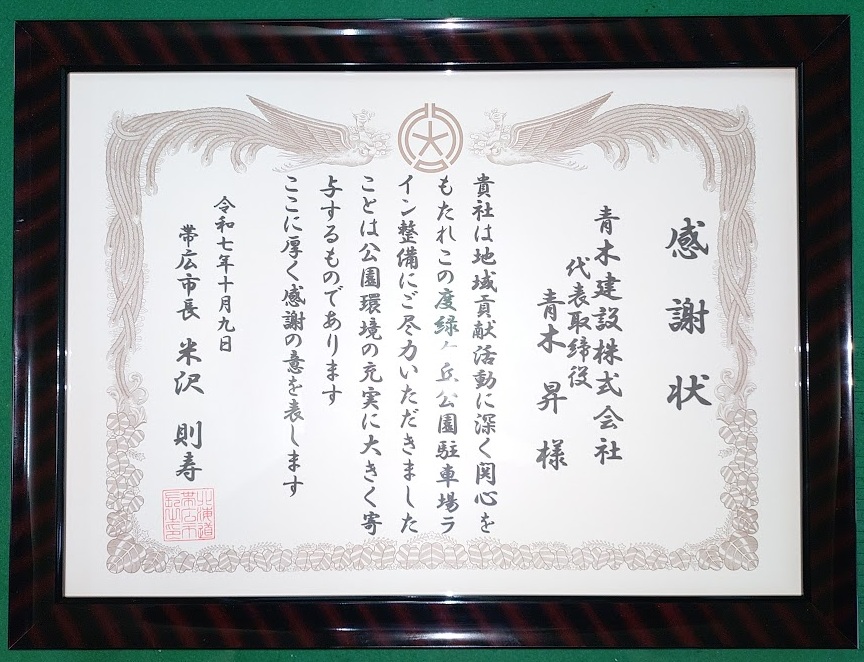 感謝状
青木建設株式会社
代表取締役
青木昇様
貴社は地域貢献活動に深く関心を
もたれこの度緑ケ丘公園駐車場ラ
イン整備にご尽力いただきました
ことは公園環境の充実に大きく寄
与するものであります
ここに厚く感謝の意を表します
令和七年十月九日
帯広市長 米沢則寿
北海道
帯広市
長之印